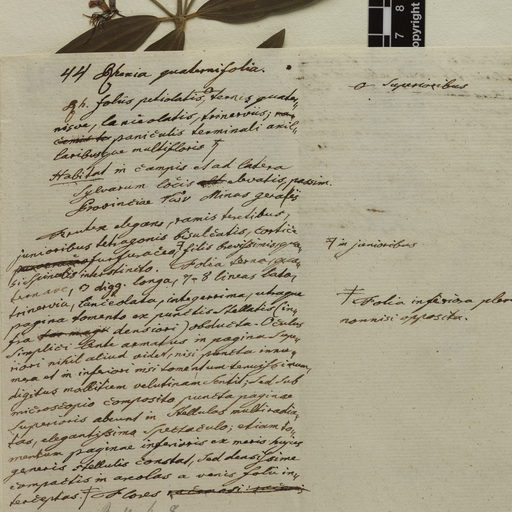 44 Rhexia quaternifolia.
Rh. foliis petiolatis, ternis, quater-
nisve, lanceolatis, trinerviis;
paniculis terminali axil-
laribusque multifloris
Habitat in campis et ad latera
Sylvarum locis elevatis, passim.
Provinciae Minas geraës
Frutex elegans, ramis teretibus,
junioribus tetragonis bisulcatis, cortice
furfuraceo, pilis brevissimis
interstincto. Folia terna,
ternave, digg. longa, 7-8 lineas lata,
trinervia, lanceolata, integerrima, utraque
pagina tomento ex punctis stellatis (in-
fra densiori) obducta. Oculus
simplici lente armatus in pagina supe-
riori nihil aliud videt, nisi puncta innu-
mera et in inferiori nisi tomentum tenuissimum,
digitus mollitiem velutinam sentit; sed sub
microscopio composito, puncta paginae
superioris abeunt in stellulas multiradia-
tas, elegantissimo spectaculo; etiam to-
mentum paginae inferioris ex meris hujus
generis stellulis constat, sed densissime
compactis in areolas a venis folii in-
terceptas. † Flores
o superioribus
in junioribus
† Folia inferiora
nonnisi opposita.
7 8
copyright